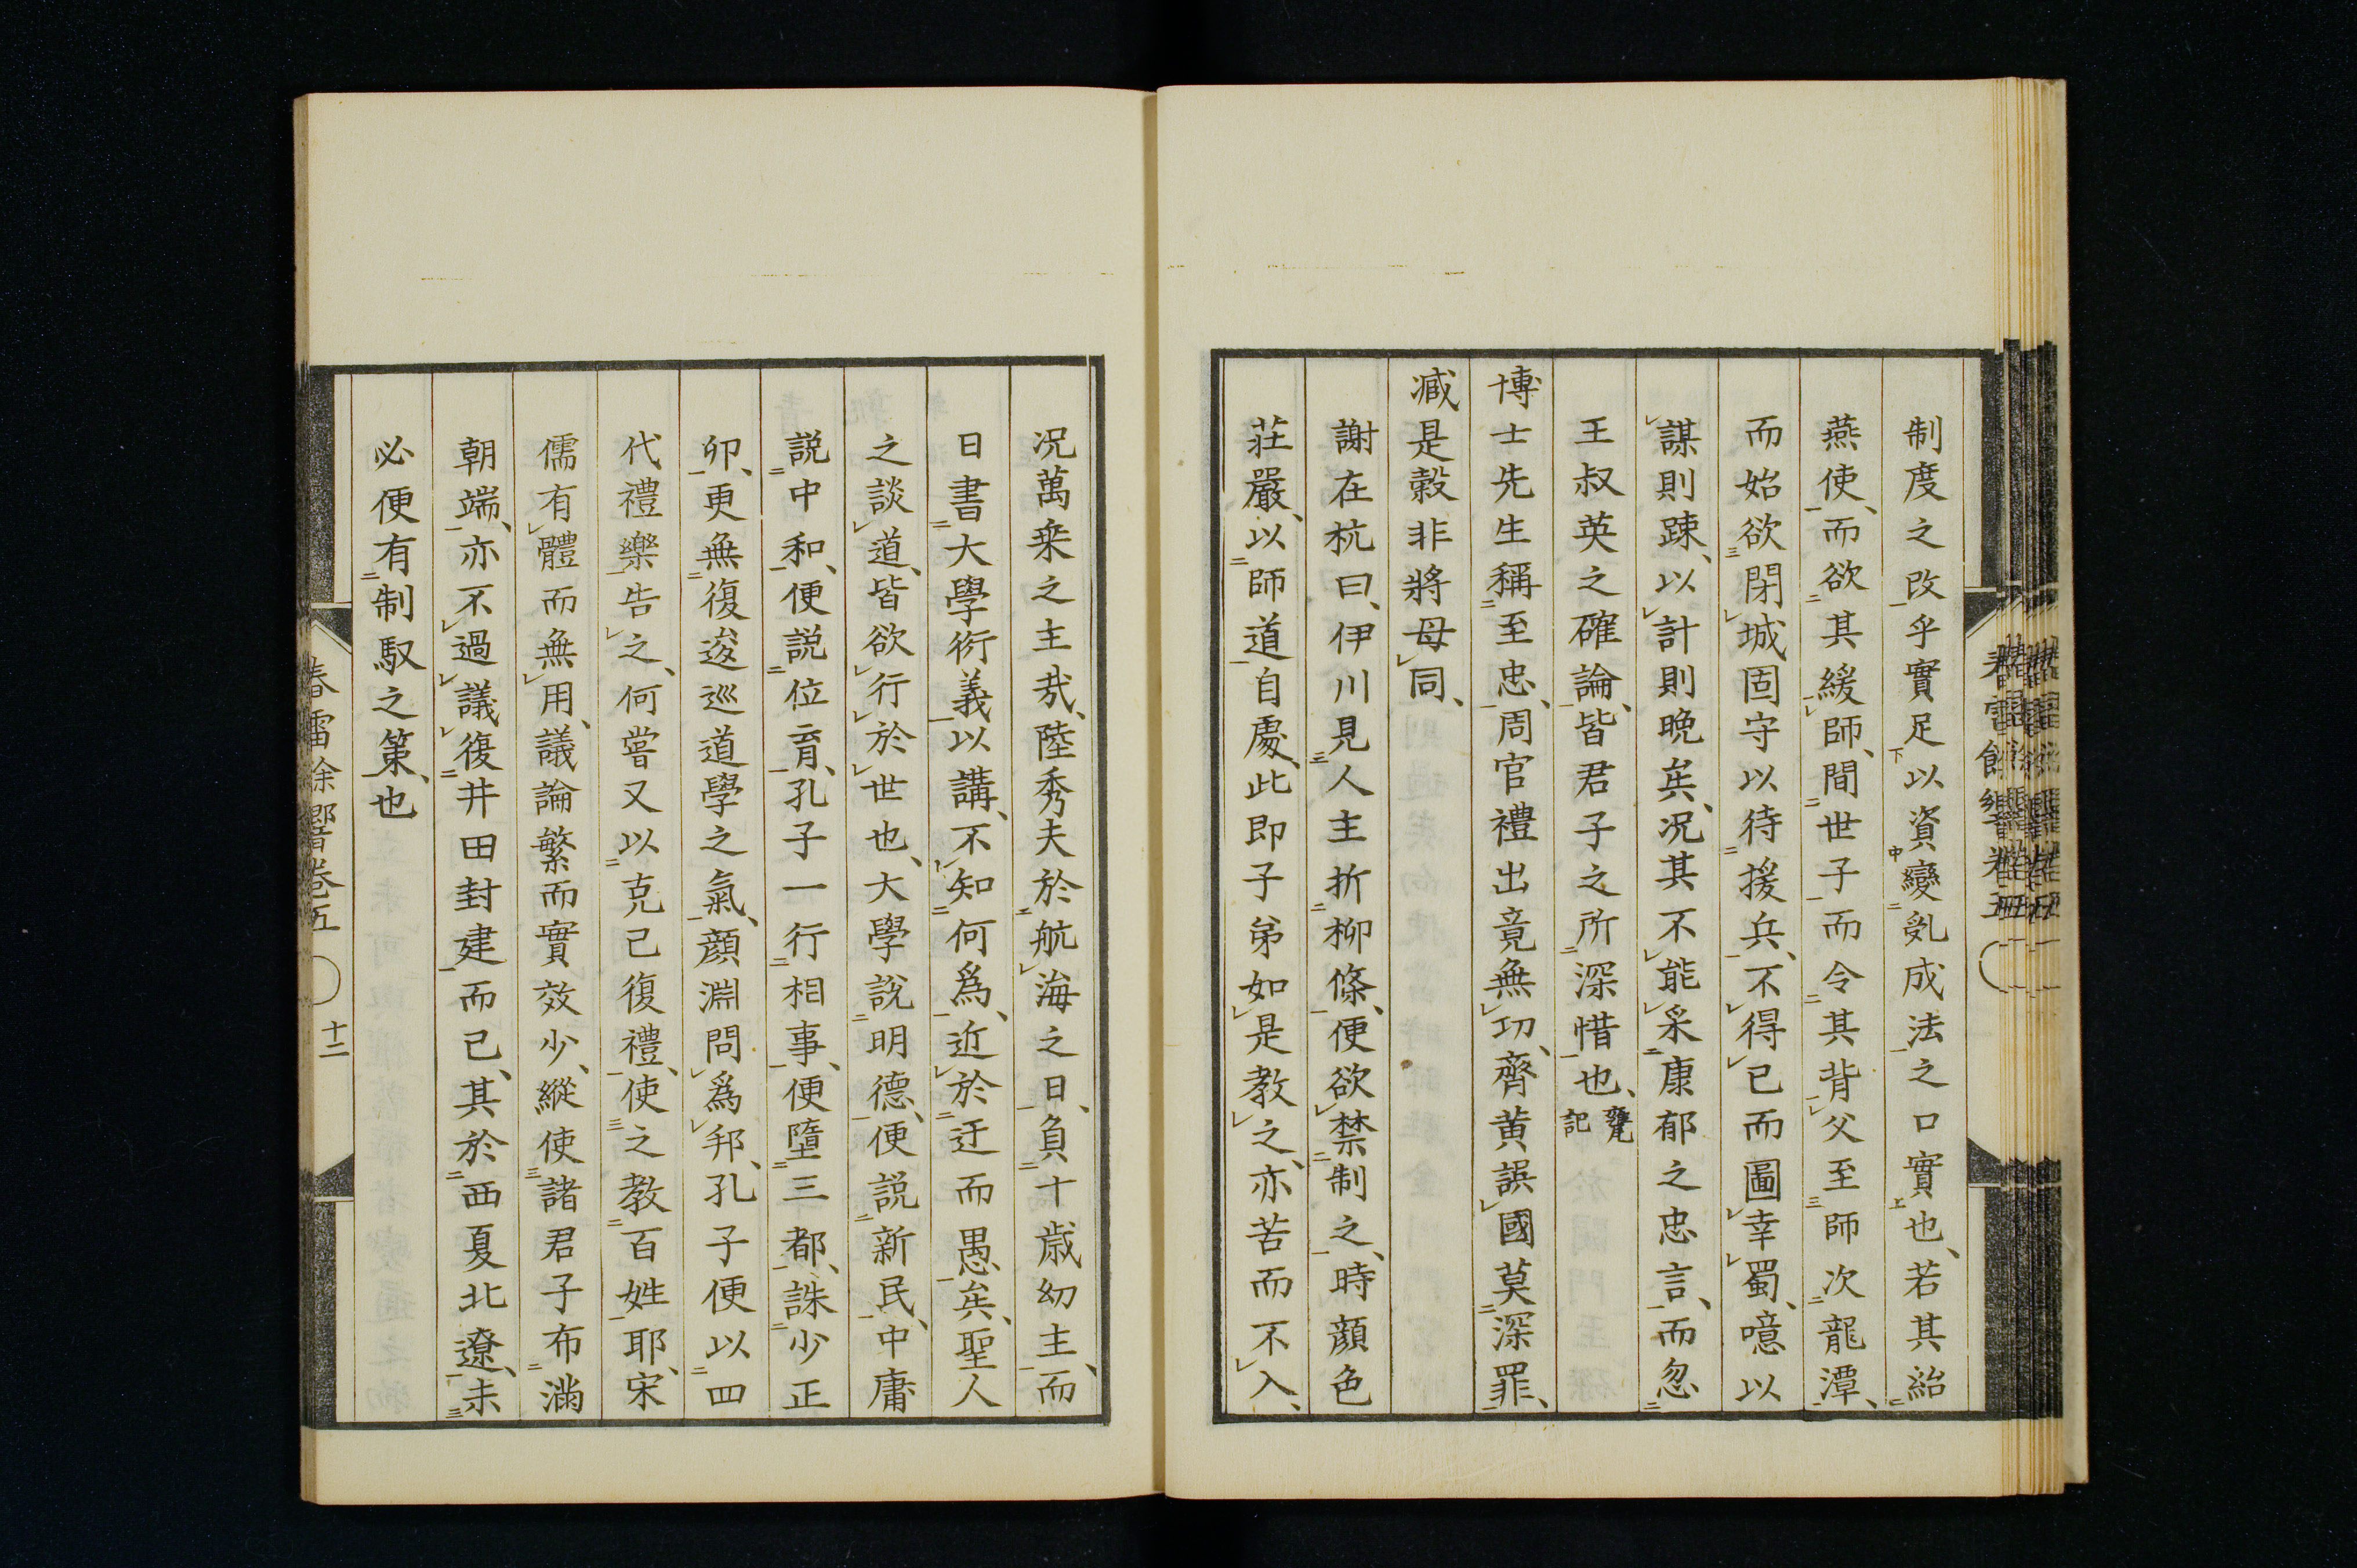 制度之改乎實足以資變乱成法之口實也、若其紿
燕使、而欲其緩師、間世子而令其背父至師次龍潭、
而始欲閉城固守以待援兵、不得已而圖幸蜀、噫以
謀則疎、以計則晩矣、况其不能采康郁之忠言、而忽
王叔英之確論、皆君子之所深惜也、
博士先生稱至忠、周官禮出竟無功、齊黄誤國莫深罪、
減是穀非將母同、
謝在杭曰、伊川見人主折柳條、便欲禁制之、時顔色
莊嚴、以師道自處、此即子弟如是教之、亦苦而不入、
况萬乗之主㢤、陸秀夫於航海之日、負十歳幼主、而
日書大學衍義以講、不知何爲、近於迂而愚矣、聖人
之談道、皆欲行於世也、大學說明德、便説新民、中庸
説中和、便説位育、孔子一行相事、便墮三都、誅少正
卯、更無復逡巡道學之氣、顔淵問爲邦、孔子便以四
代禮樂告之、何嘗又以克己復禮、使之教百姓耶、宋
儒有體而無用、議論繁而實效少、縱使諸君子布滿
朝端、亦不過議復井田封建而已、其於西夏北遼、未
必便有制馭之策、也
春雷餘響卷五 十二